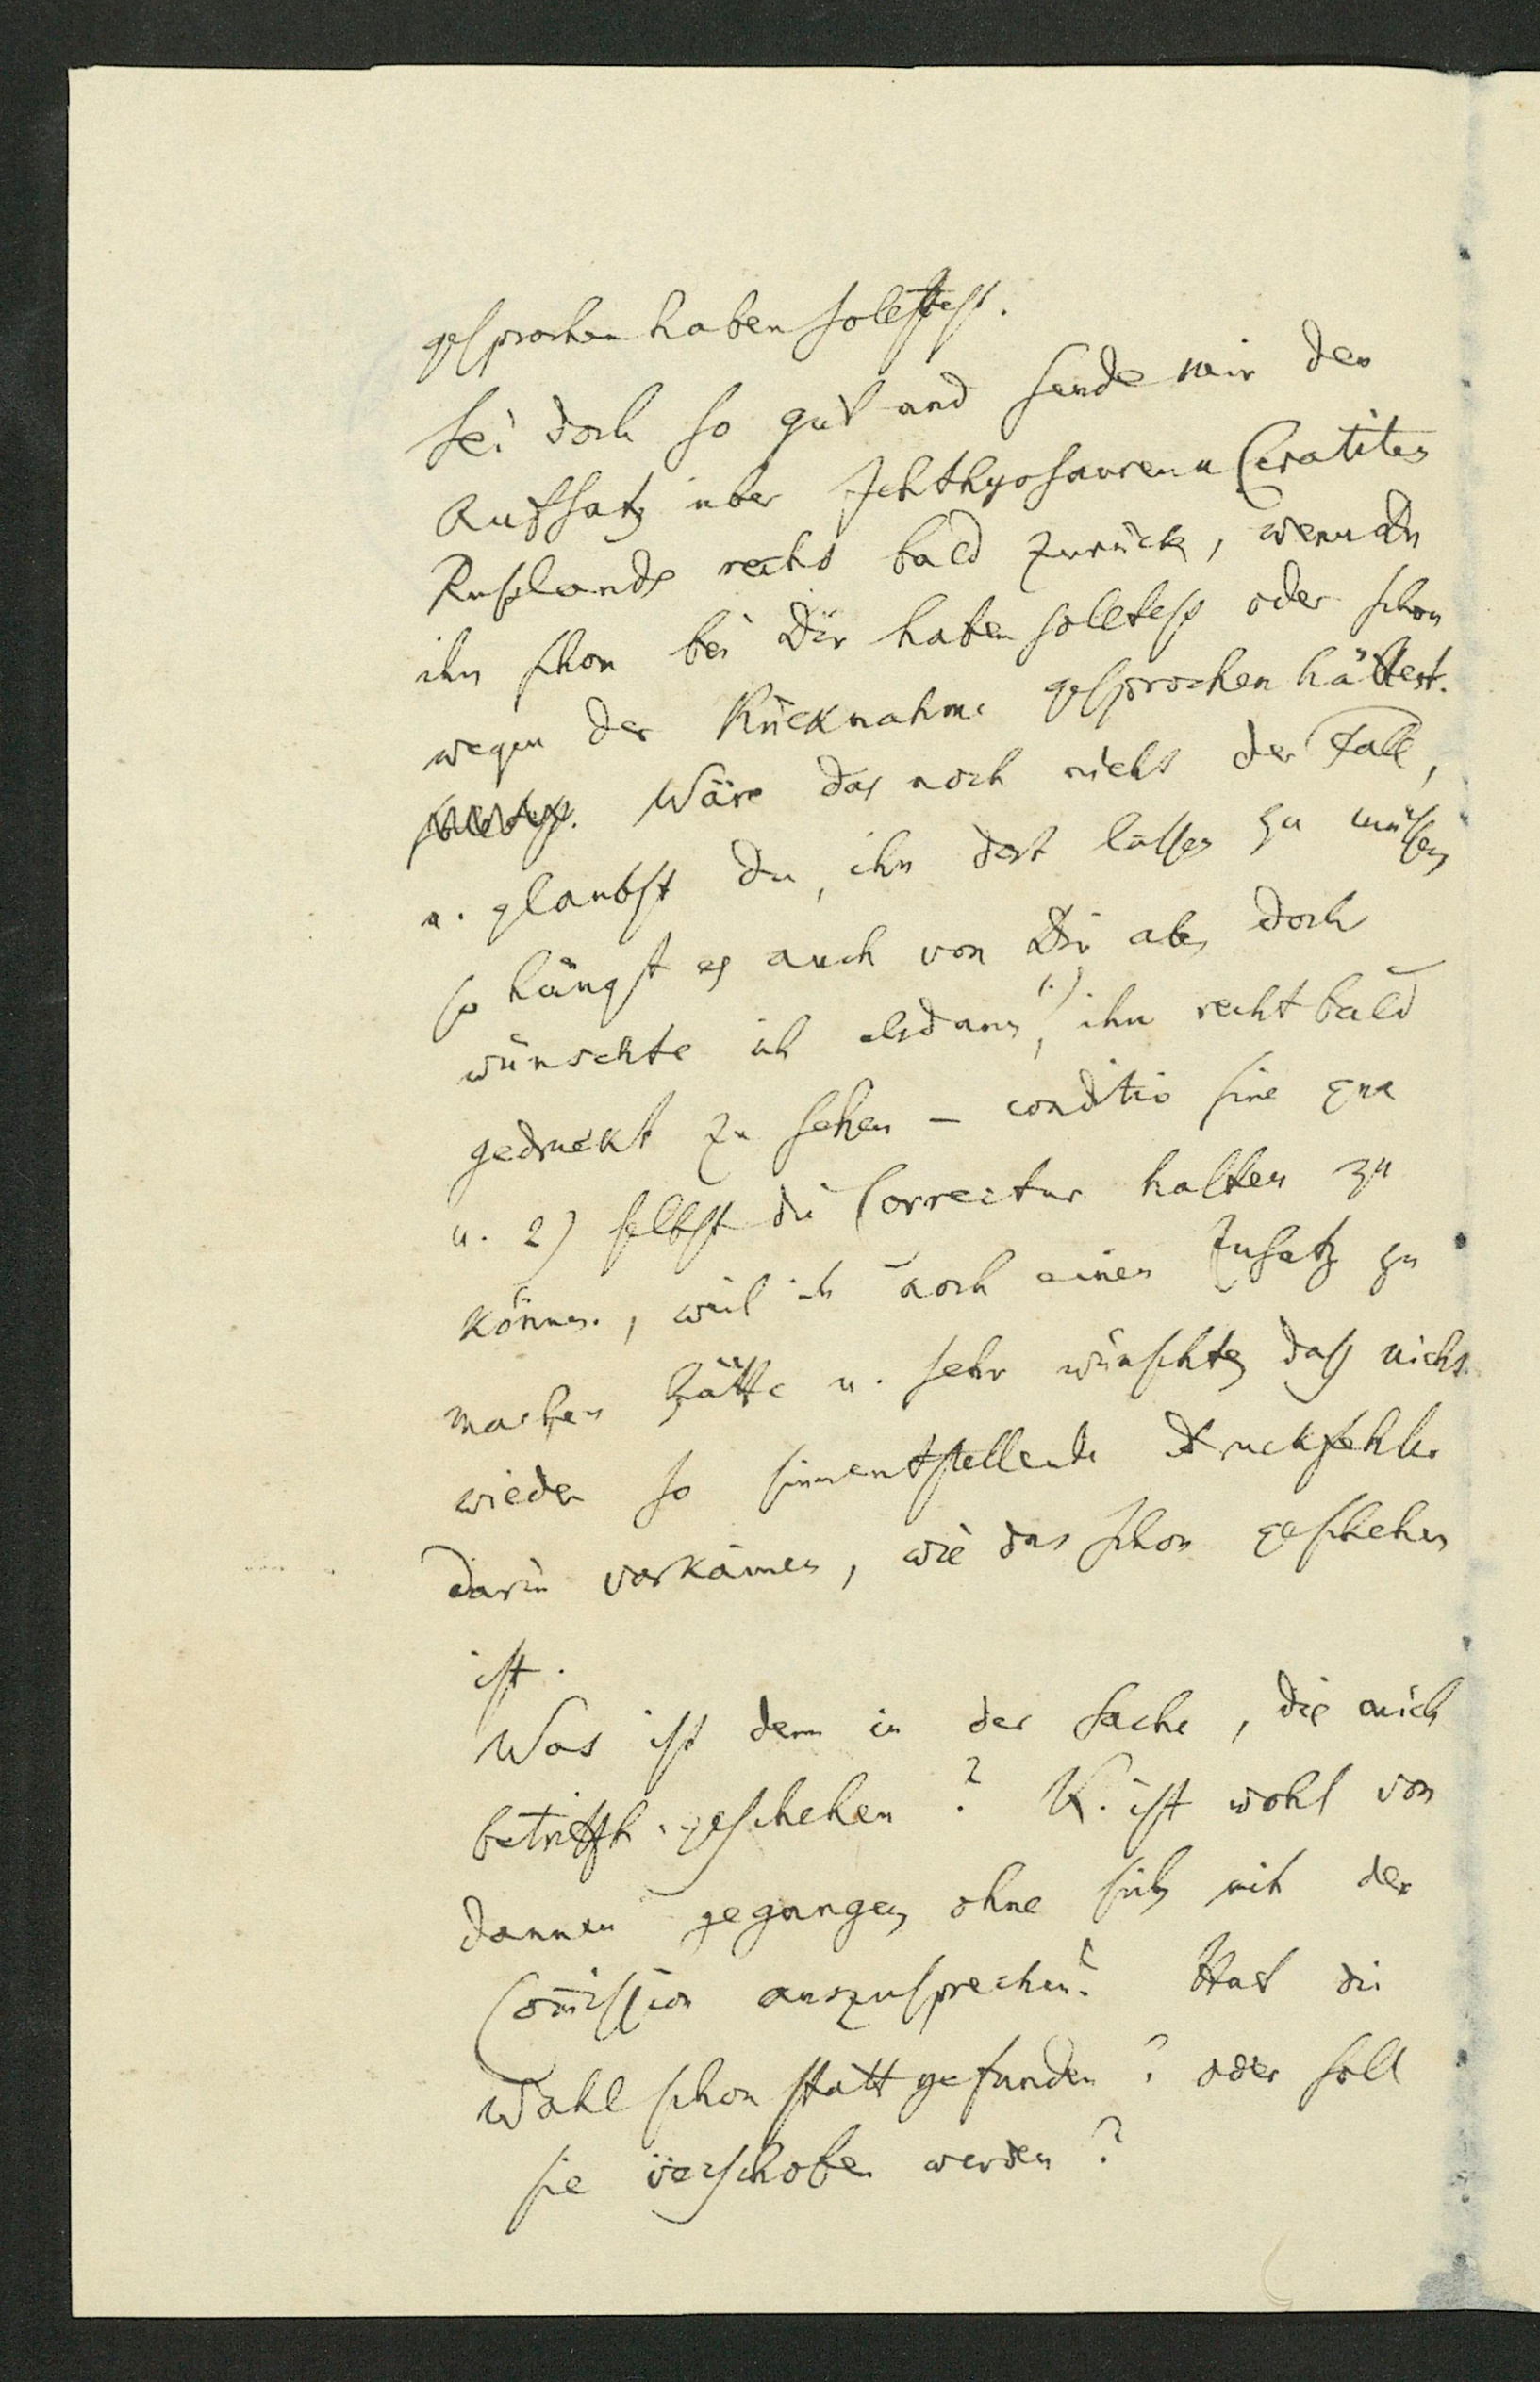 gesprochen haben solltest.
Sei doch so gut und sende mir den
Aufsatz über Ichthyosauren u Ceratiten
Russlands recht bald zurück, wenn Du
ihn schon bei Dir haben solltest oder schon
wegen der Rücknahme gesprochen hättest.
solltest. Wäre das noch nicht der Fall,
u. glaubst Du, ihn dort lassen zu müssen
so hängt es auch von Dir ab, doch
wünschte ich alsdann 1.), ihn recht bald
gedruckt zu sehen – conditio sine qua
u. 2) selbst die Correctur halten zu
können, weil ich noch einen Zusatz zu
machen hätte u. sehr wünschte, dass nicht
wieder so sinnentstellende Druckfehler
darin vorkämen, wie das schon geschehen
ist.
Was ist denn in der Sache, die mich
betrifft, geschehen? K. ist wohl von
dannen gegangen, ohne sich mit der
Com̅ission auszusprechen? Hat die
Wahl schon statt gefunden? oder soll
sie verschoben werden?